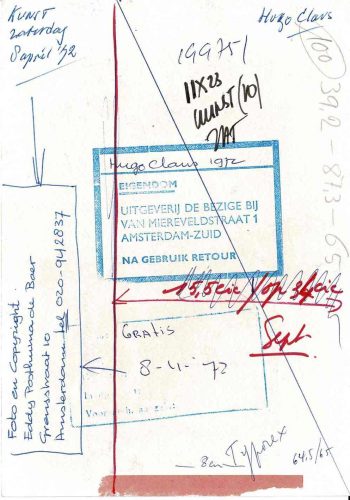 KUNST
zaterdag
8 april '72
Hugo Claus
19975/
100
392-873-65
11X23
KUNST (10)
ZAT
Hugo Claus 1972
EIGENDOM
UITGEVERIJ DE BEZIGE BIJ
VAN MIEREVELDSTRAAT 1
AMSTERDAM-ZUID
NA GEBRUIK RETOUR
Foto en Copyright:
Eddy Posthuma de Boer
Grensstraat 10
Amsterdam tel 020-942837
15,5 cic / op 34 cic
Sept
GRATIS
8-4-'72
Voor
64.5/65